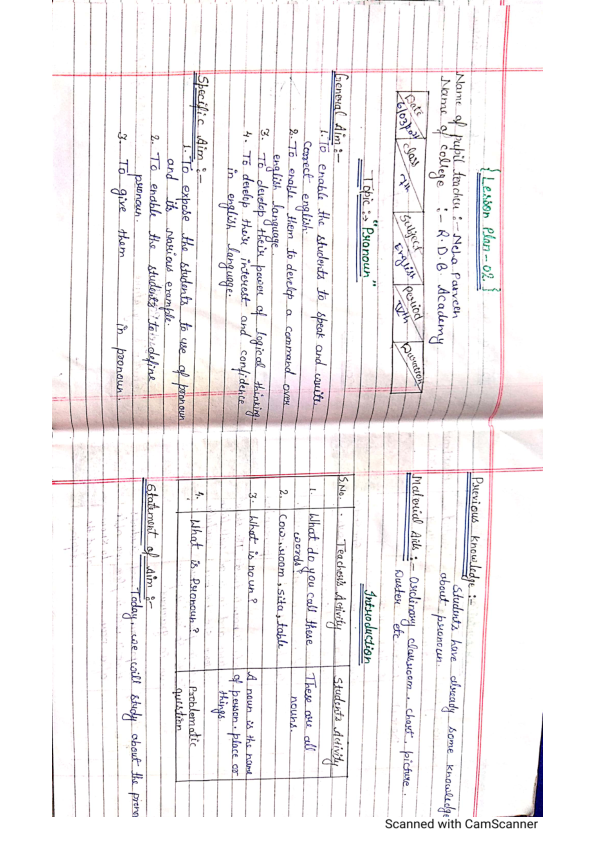 {Lesson Plan-02}
Name of pupil teacher :- Neha Parveen
Name of college :- R.D.B. Academy
Date class Subject period Duration
7th English IVth
Topic :→ "Pronoun"
General Aim :-
1. To enable the students to speak and write
correct english.
2. To enable them to develop a command over
english language
3. To develop their power of logical thinking.
4. To develop their interest and confidence
in english language.
Specific Aim :-
1. To expose the students to use of pronoun
and its various example.
2. To enable the students to define
pronoun.
3. To give them in pronoun.
Previous knowledge :-
Students have already some knowledge
about pronoun.
Material Aids :- Ordinary classroom, chart, picture,
Duster etc
Introduction
S.No. Teacher's Activity Student's Activity
1. What do you call these These are all
words? nouns.
2. Cow, room, sita, table
3. What is noun? A noun is the name
of person, place or
things.
4. What is Pronoun? Problematic
question
Statement of Aim :-
Today, we will study about the prono
Scanned with CamScanner